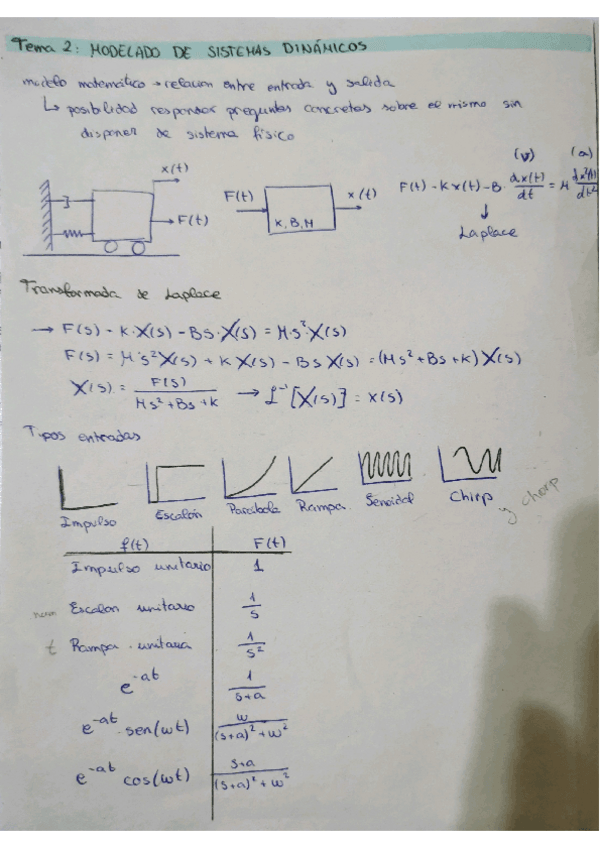 Tema 2: MODELADO DE SISTEMAS DINÁMICOS
modelo matemático → relacion entre entrada y salida
↳ posibilidad responder preguntas concretas sobre el mismo sin
disponer de sistema físico
x(t)
F(t)
F(t)
K, B, M
x(t)
(v) (a)
F(t) - K x(t) - B · dx(t)/dt = M dx²(t)/dt²
↓
Laplace
Transformada de Laplace
→ F(s) - K·X(s) - Bs·X(s) = M·s²·X(s)
F(s) = M·s²X(s) + K X(s) - Bs X(s) = (Ms² + Bs + K) X(s)
X(s) = F(s)/(Ms² + Bs + K) → L⁻¹[X(s)] = x(s)
Tipos entradas
Impulso Escalón Parábola Rampa Senoidal Chirp
y chirp
f(t) F(t)
Impulso unitario 1
Escalon unitario 1/s
t Rampa unitaria 1/s²
e^-at 1/(s+a)
e^-at · sen(wt) w/((s+a)² + w²)
e^-at cos(wt) s+a/((s+a)² + w²)